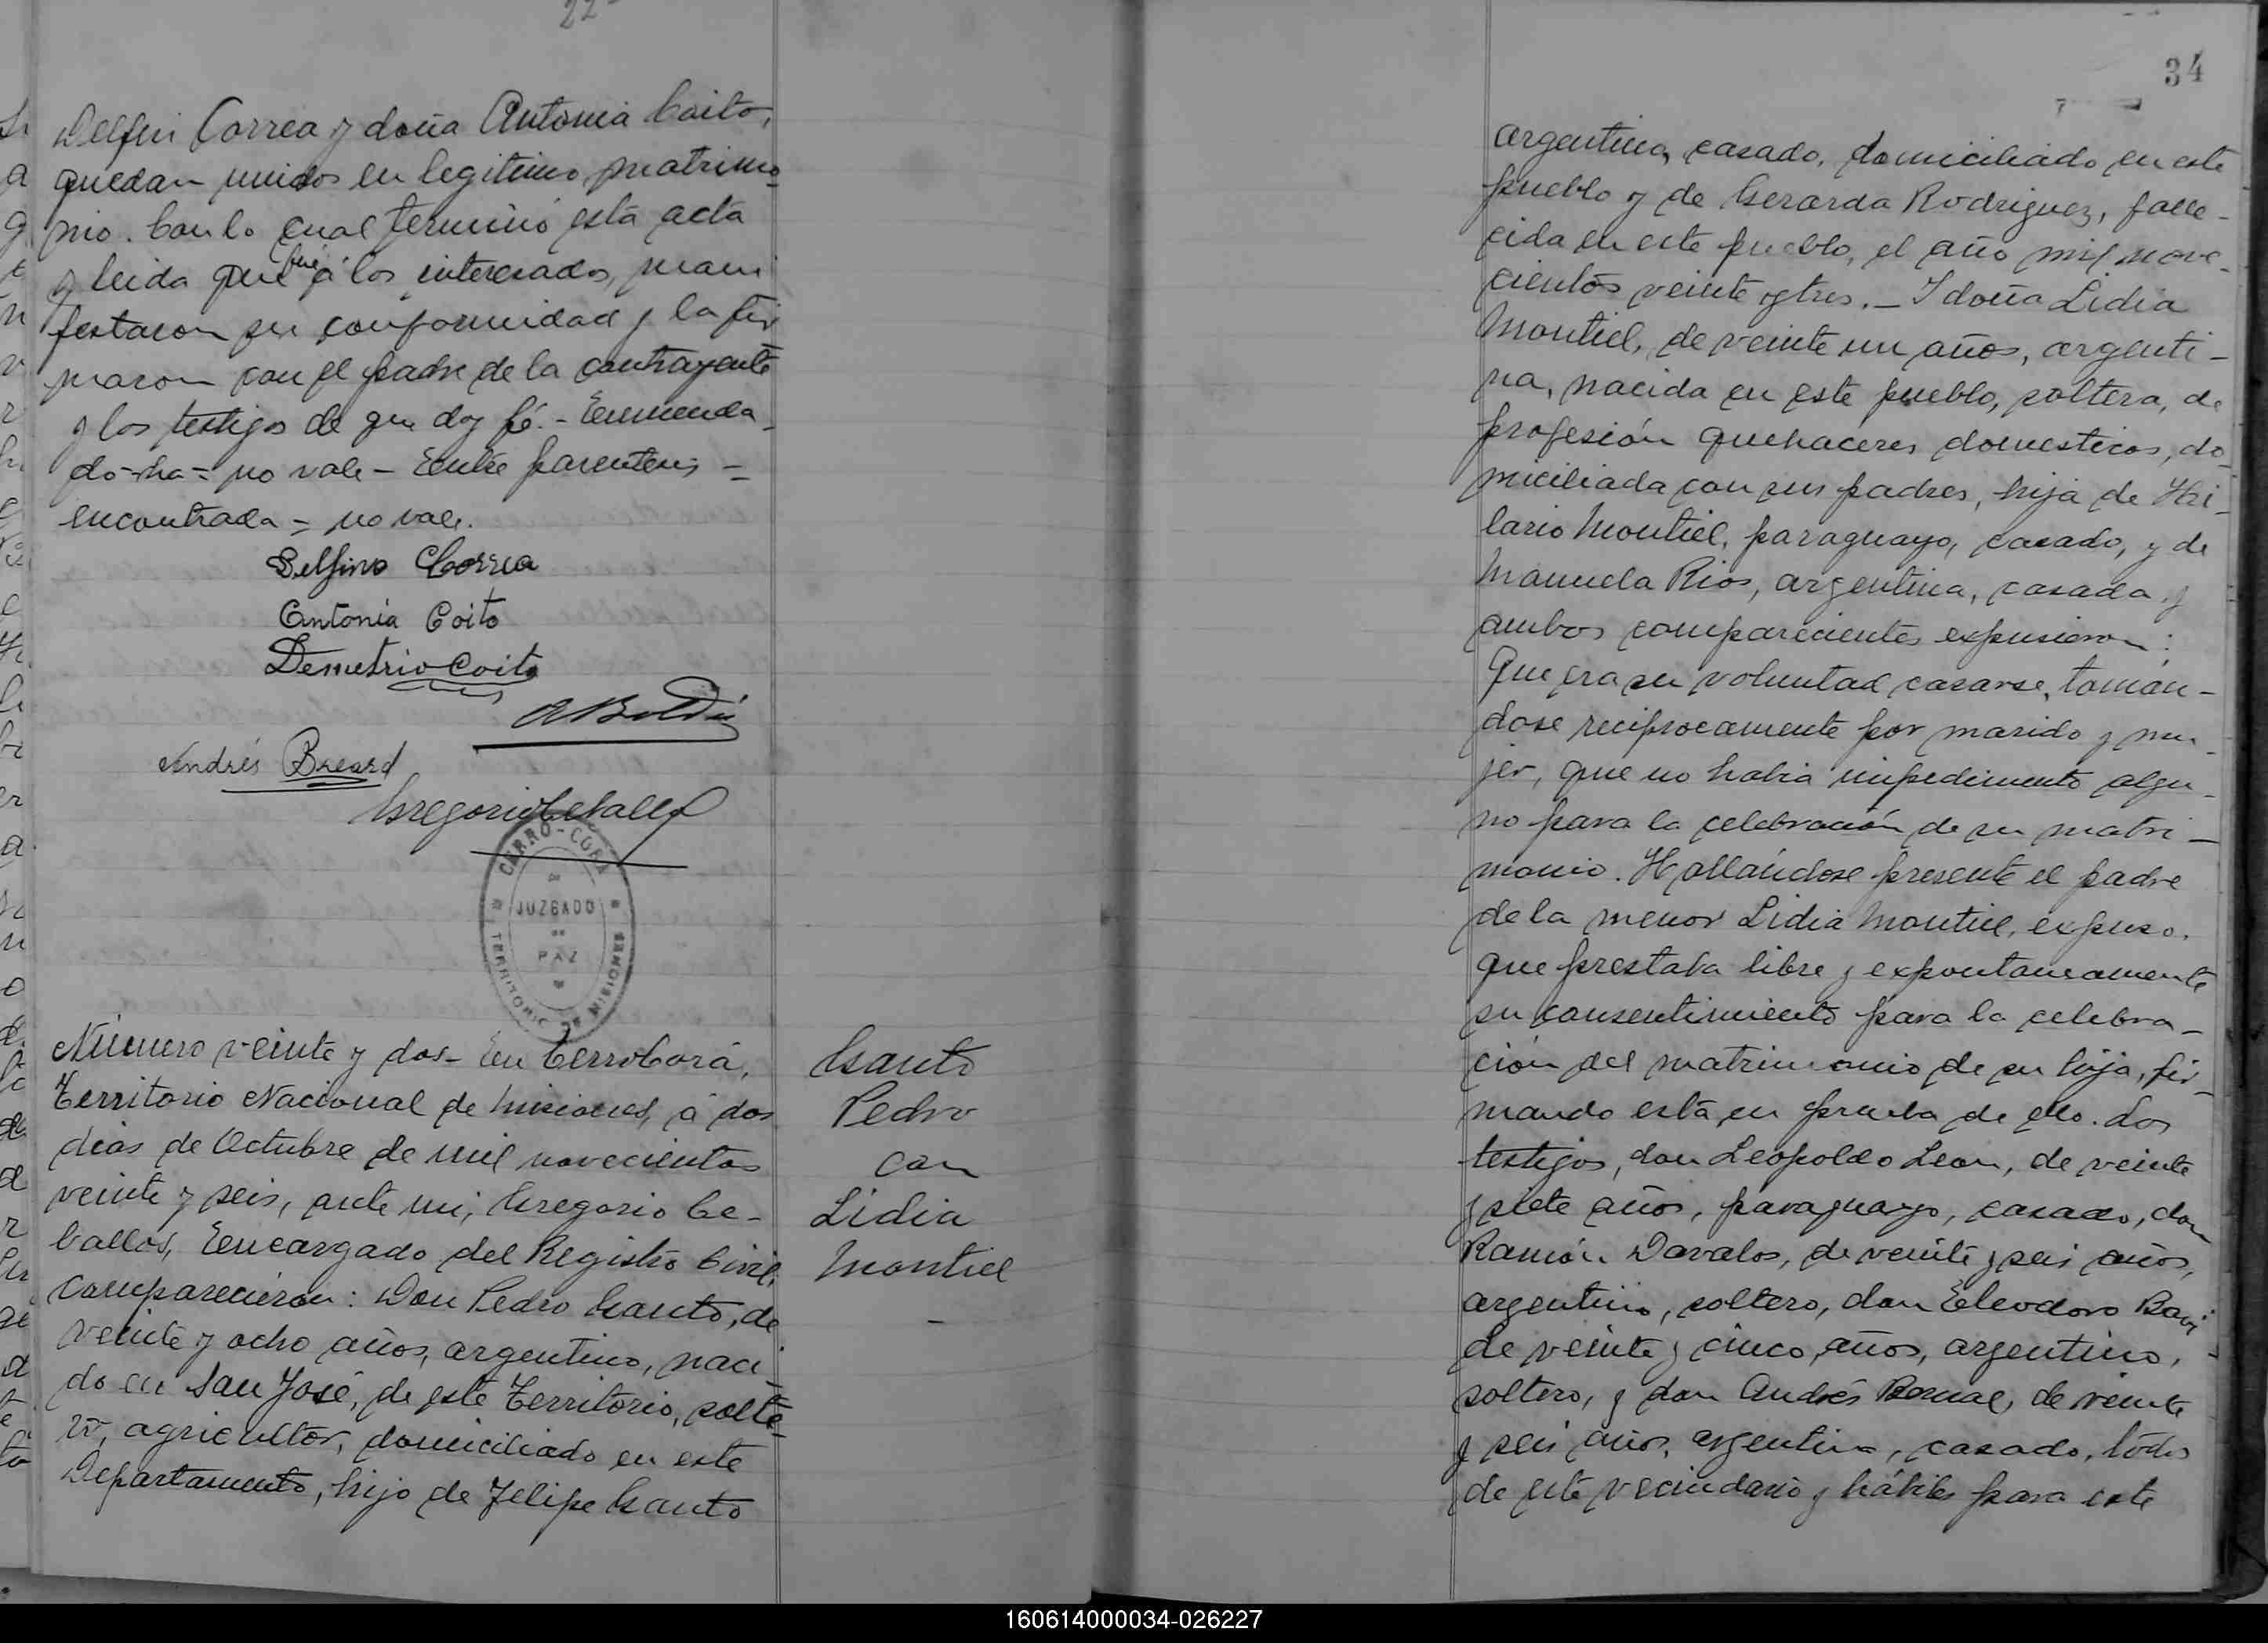 22
Delfin Correa y doña Antonia Coito,
quedan unidos en legitimo matrimo-
nio. Con lo cual terminó esta acta
y leida que fué á los interesados, mani
festaron su conformidad y la fir
maron con el padre de la contrayente
y los testigos de que doy fé. - Enmenda-
do-ha = no vale - Entre parentesis =
encontrada = no vale.
Delfino Correa
Antonia Coito
Demetrio Coito
Andrés Breard
Gregorio Ceballos
CERRO-CORA
JUZGADO
DE
PAZ
TERRITORIO DE MISIONES
Número veinte y dos - En Cerro Corá,
Territorio Nacional de Misiones, á dos
dias de Octubre de mil novecientos
veinte y seis, ante mi, Gregorio Ce-
ballos, Encargado del Registro Civil,
comparecieron: Don Pedro Gauto, de
veinte y ocho años, argentino, naci-
do en San José, de este Territorio, solte-
ro, agricultor, domiciliado en este
Departamento, hijo de Felipe Gauto
Gauto
Pedro
con
Lidia
Montiel
-
34
argentino, casado, domiciliado en este
pueblo y de Gerarda Rodriguez, falle-
cida en este pueblo, el año mil nove-
cientos veinte y tres. - I doña Lidia
Montiel, de veinte un años, argenti-
na, nacida en este pueblo, soltera, de
profesión quehaceres domesticos, do-
miciliada con sus padres, hija de Hi-
lario Montiel, paraguayo, casado, y de
Manuela Rios, argentina, casada y
ambos comparecientes expusieron:
Que era su voluntad casarse, toman-
dose reciprocamente por marido y mu-
jer, que no habia impedimento algu-
no para la celebración de su matri-
monio. Hallándose presente el padre
de la menor Lidia Montiel, expuso.
que prestaba libre y expontaneamente
su consentimiento para la celebra-
ción del matrimonio de su hija, fir-
mando esta en prueba de ello. Los
testigos, don Leopoldo Leon, de veinte
y siete años, paraguayo, casado, don
Ramón Davalos, de veinte y seis años,
argentino, soltero, don Eleodoro
de veinte y cinco años, argentino,
soltero, y don Andrés Bernal, de veinte
y seis años, argentino, casado, todos
de este vecindario y hábiles para este
160614000034-026227